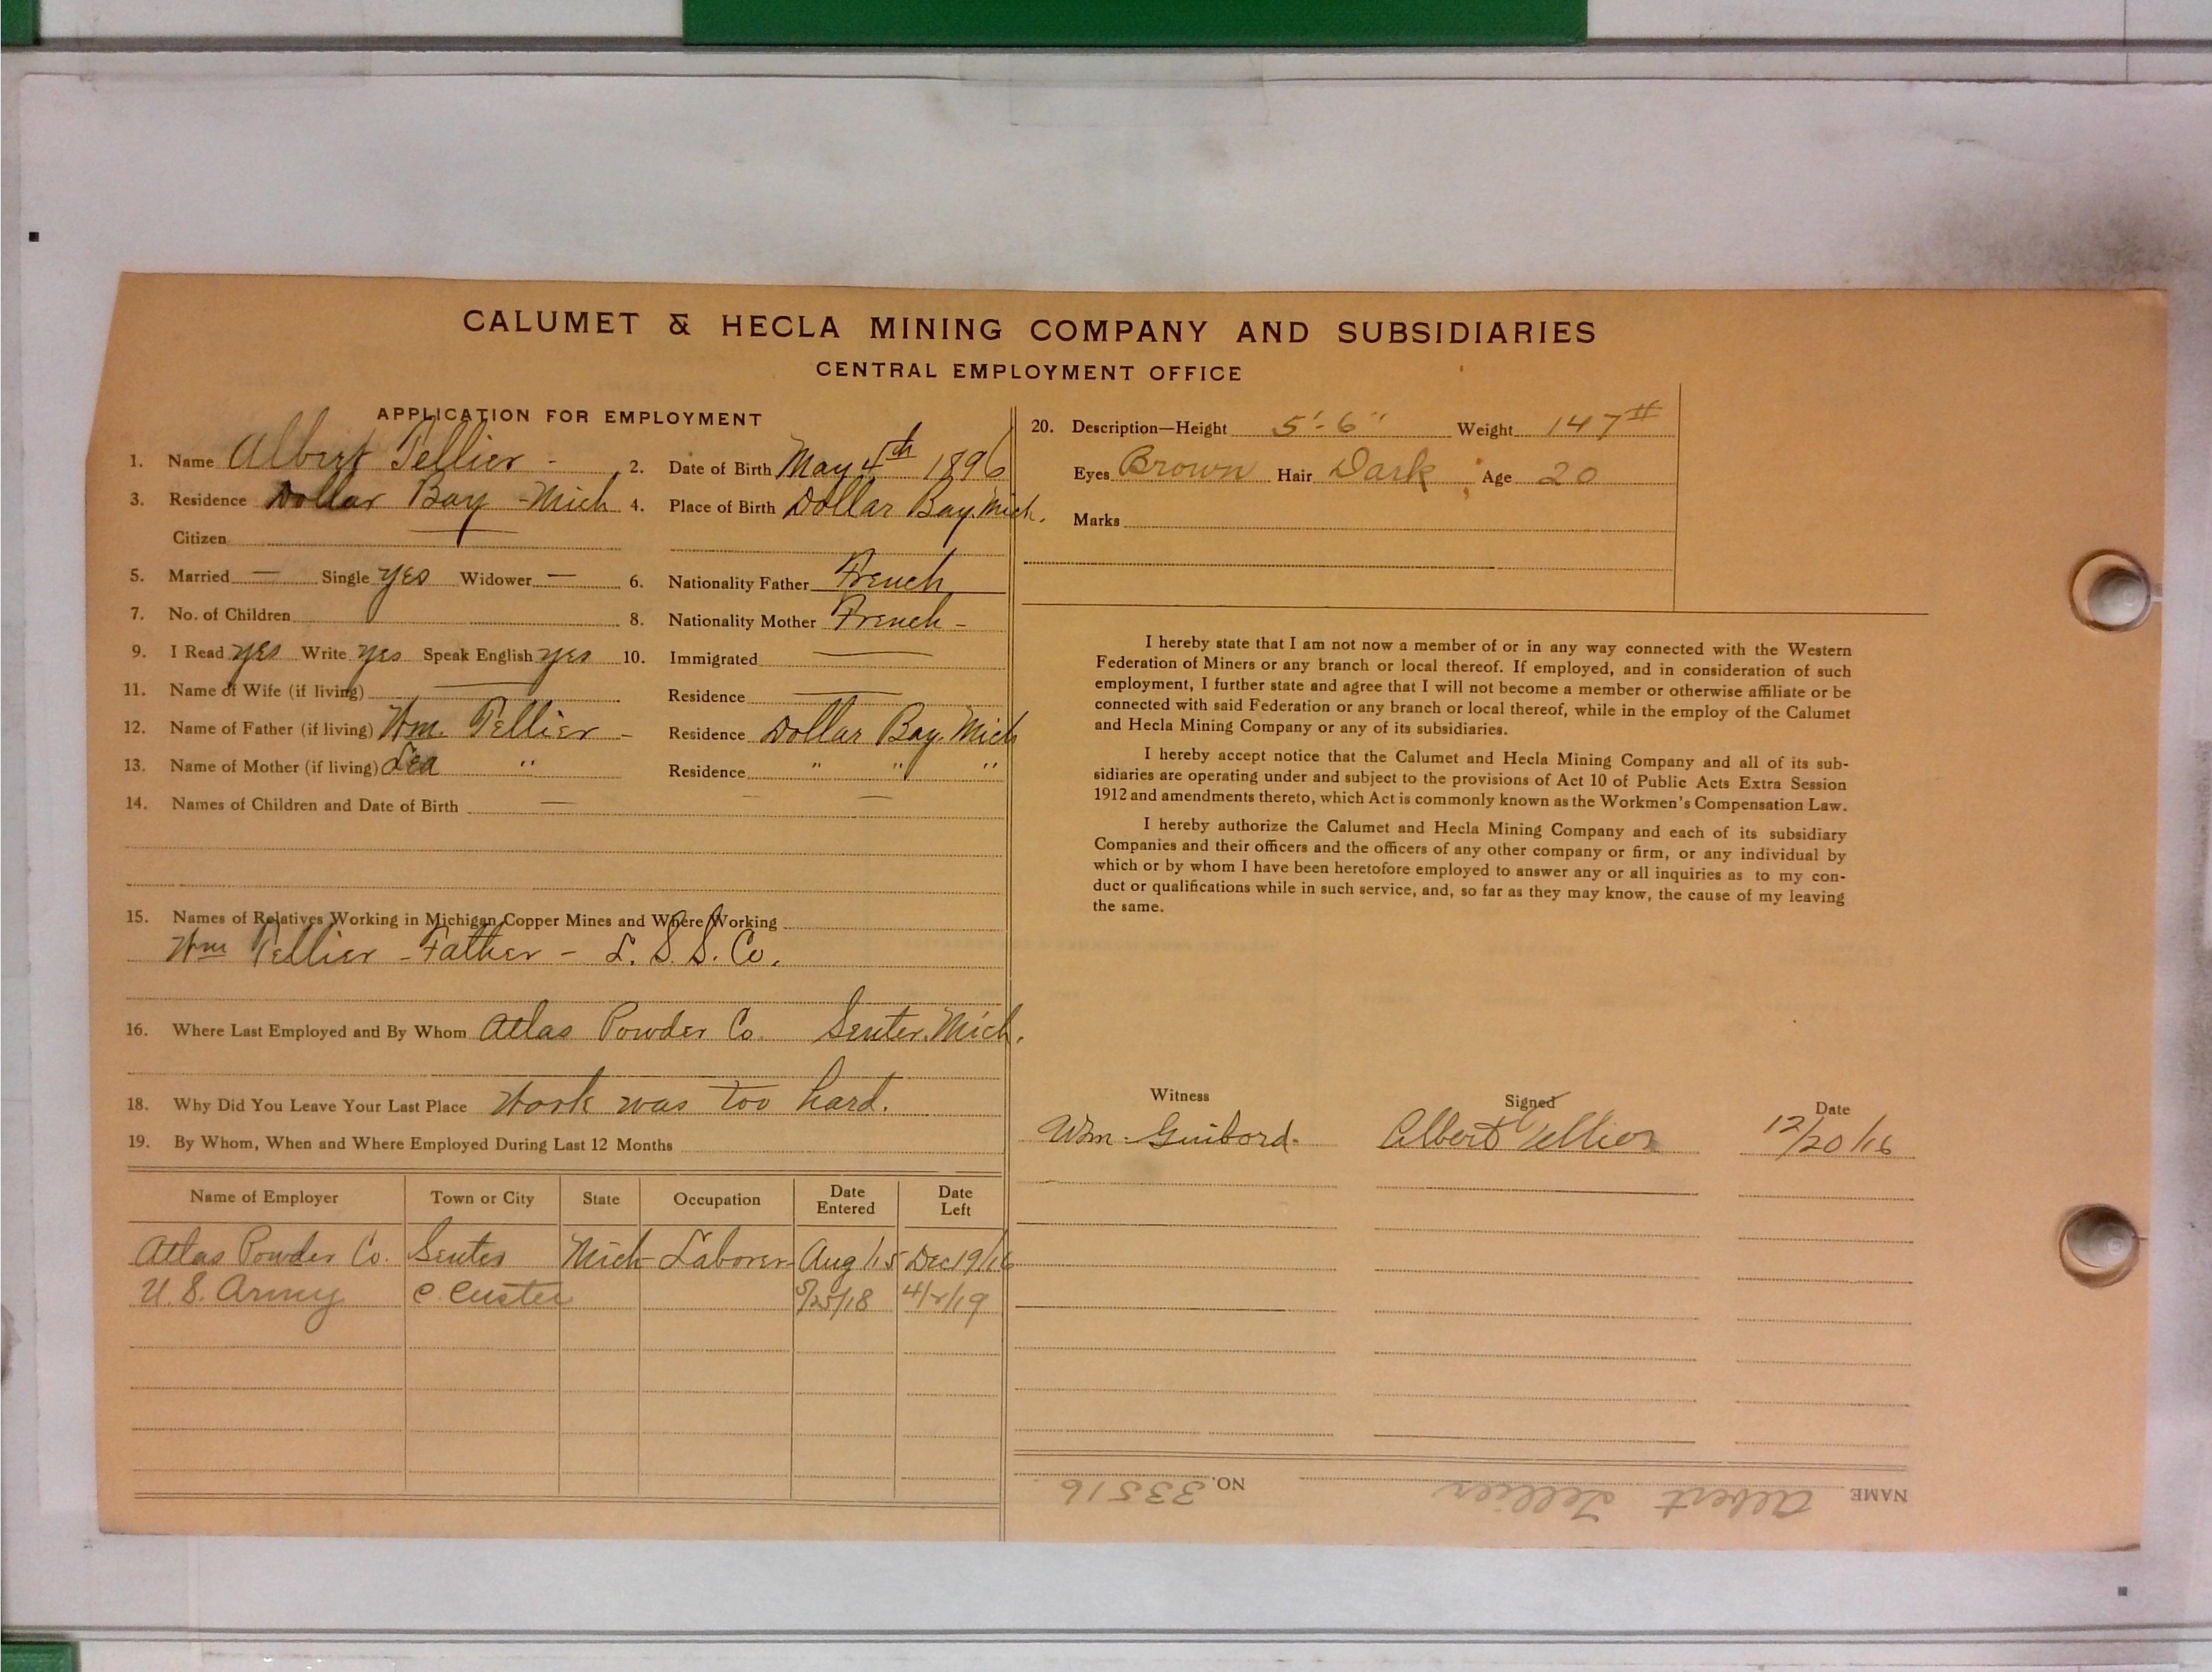 CALUMET & HECLA MINING COMPANY AND SUBSIDIARIES
CENTRAL EMPLOYMENT OFFICE
APPLICATION FOR EMPLOYMENT
1. Name Albert Tellier - 2. Date of Birth May 4th 1896
3. Residence Dollar Bay - Mich 4. Place of Birth Dollar Bay, Mich.
Citizen
5. Married — Single yes Widower — 6. Nationality Father French
7. No. of Children 8. Nationality Mother French -
9. I Read yes Write yes Speak English yes 10. Immigrated —
11. Name of Wife (if living) — Residence —
12. Name of Father (if living) Wm. Tellier - Residence Dollar Bay. Mich
13. Name of Mother (if living) Lea " Residence " " "
14. Names of Children and Date of Birth — — —
15. Names of Relatives Working in Michigan Copper Mines and Where Working
Wm Tellier - Father - L. S. S. Co.
16. Where Last Employed and By Whom Atlas Powder Co. Senter, Mich.
18. Why Did You Leave Your Last Place Work was too hard.
19. By Whom, When and Where Employed During Last 12 Months
Name of Employer Town or City State Occupation Date Entered Date Left
Atlas Powder Co. Senter Mich - Laborer - Aug/15 Dec 19/16
U.S. Army C. Custer /18 /19
20. Description—Height 5'-6" Weight 147#
Eyes Brown Hair Dark Age 20
Marks
I hereby state that I am not now a member of or in any way connected with the Western
Federation of Miners or any branch or local thereof. If employed, and in consideration of such
employment, I further state and agree that I will not become a member or otherwise affiliate or be
connected with said Federation or any branch or local thereof, while in the employ of the Calumet
and Hecla Mining Company or any of its subsidiaries.
I hereby accept notice that the Calumet and Hecla Mining Company and all of its sub-
sidiaries are operating under and subject to the provisions of Act 10 of Public Acts Extra Session
1912 and amendments thereto, which Act is commonly known as the Workmen's Compensation Law.
I hereby authorize the Calumet and Hecla Mining Company and each of its subsidiary
Companies and their officers and the officers of any other company or firm, or any individual by
which or by whom I have been heretofore employed to answer any or all inquiries as to my con-
duct or qualifications while in such service, and, so far as they may know, the cause of my leaving
the same.
Witness Signed Date
Wm. Guibord. Albert Tellier 12/20/16
NAME Albert Tellier NO. 33516